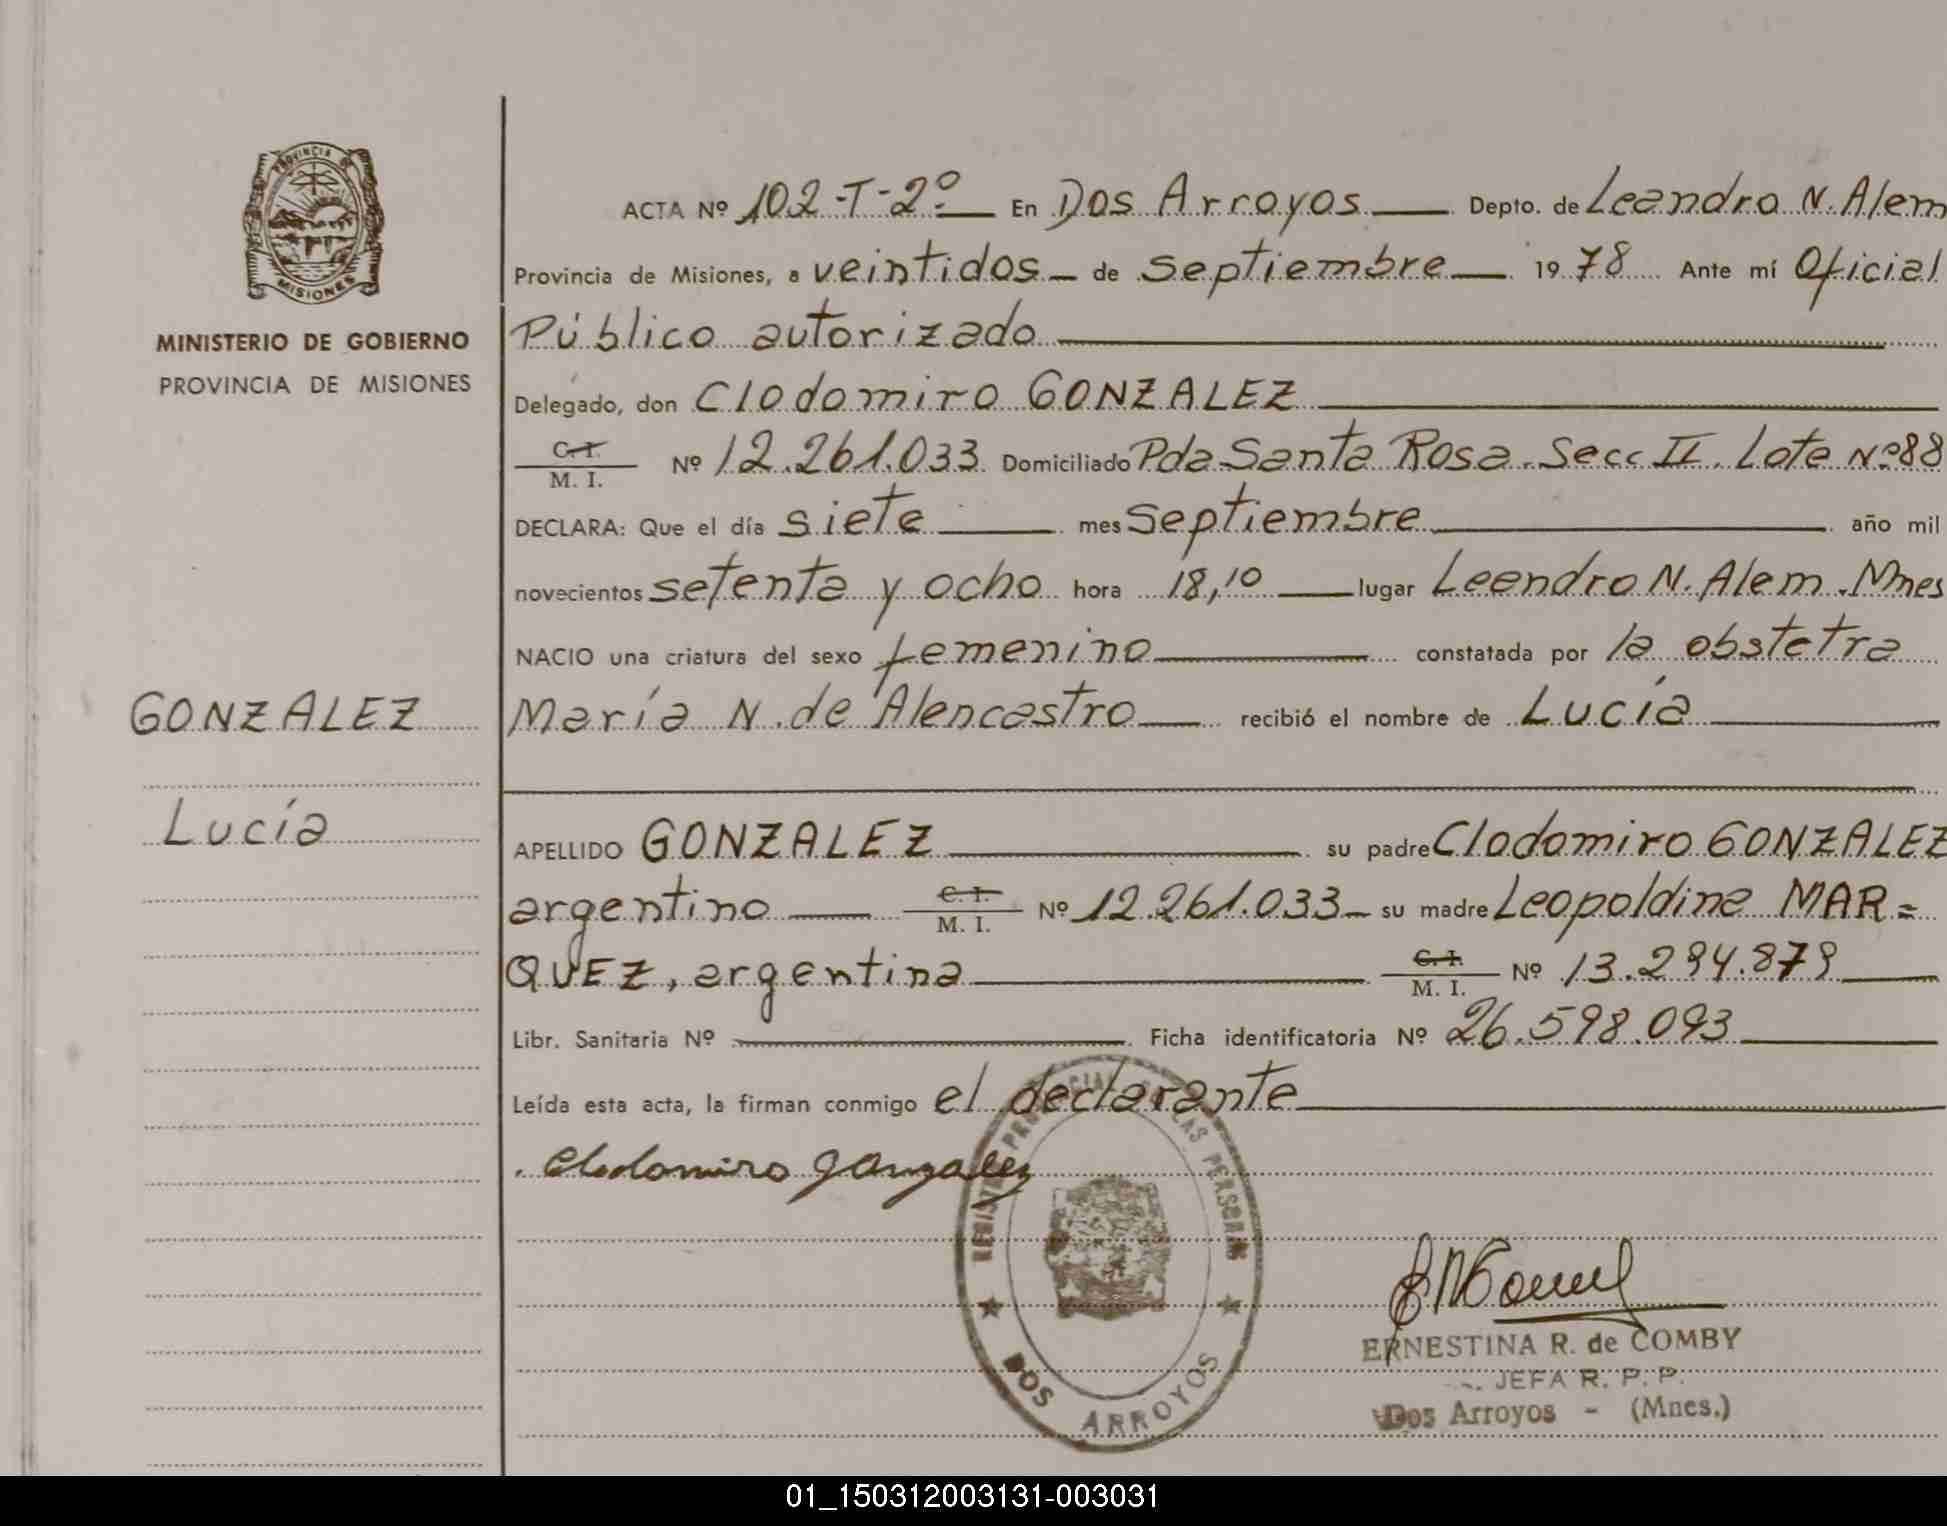 PROVINCIA DE
MISIONES
MINISTERIO DE GOBIERNO
PROVINCIA DE MISIONES
GONZALEZ
Lucía
ACTA Nº 102-T-2º En Dos Arroyos Depto. de Leandro N. Alem
Provincia de Misiones, a veintidos de septiembre 1978 Ante mí Oficial
Público autorizado
Delegado, don Clodomiro GONZALEZ
C. I. M. I. Nº 12.261.033 Domiciliado Pda Santa Rosa. Secc II. Lote Nº 88
DECLARA: Que el día siete mes Septiembre año mil
novecientos setenta y ocho hora 18,10 lugar Leandro N. Alem. Mnes
NACIO una criatura del sexo femenino constatada por la obstetra
María N. de Alencastro recibió el nombre de Lucía
APELLIDO GONZALEZ su padre Clodomiro GONZALEZ
argentino C. I. M. I. Nº 12.261.033 su madre Leopoldina MAR=
QUEZ, argentina C. I. M. I. Nº 13.294.879
Libr. Sanitaria Nº Ficha identificatoria Nº 26.598.093
Leída esta acta, la firman conmigo el declarante
Clodomiro Gonzalez
DOS ARROYOS
ERNESTINA R. de COMBY
JEFA R. P. P.
Dos Arroyos - (Mnes.)
01_150312003131-003031